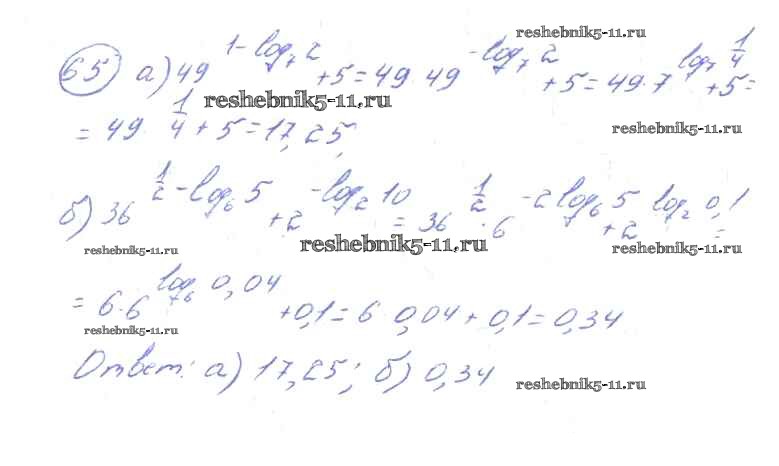 reshebnik5-11.ru
65) а) 49^(1-log₇2) + 5 = 49·49^(-log₇2) + 5 = 49·7^(log₇ 1/4) + 5 =
reshebnik5-11.ru
= 49·1/4 + 5 = 17,25;
reshebnik5-11.ru
б) 36^(1/2-log₆5) + 2^(-log₂10) = 36^(1/2)·6^(-2log₆5) + 2^(log₂0,1) =
reshebnik5-11.ru reshebnik5-11.ru reshebnik5-11.ru
= 6·6^(log₆0,04) + 0,1 = 6·0,04 + 0,1 = 0,34
reshebnik5-11.ru
Ответ: а) 17,25; б) 0,34
reshebnik5-11.ru